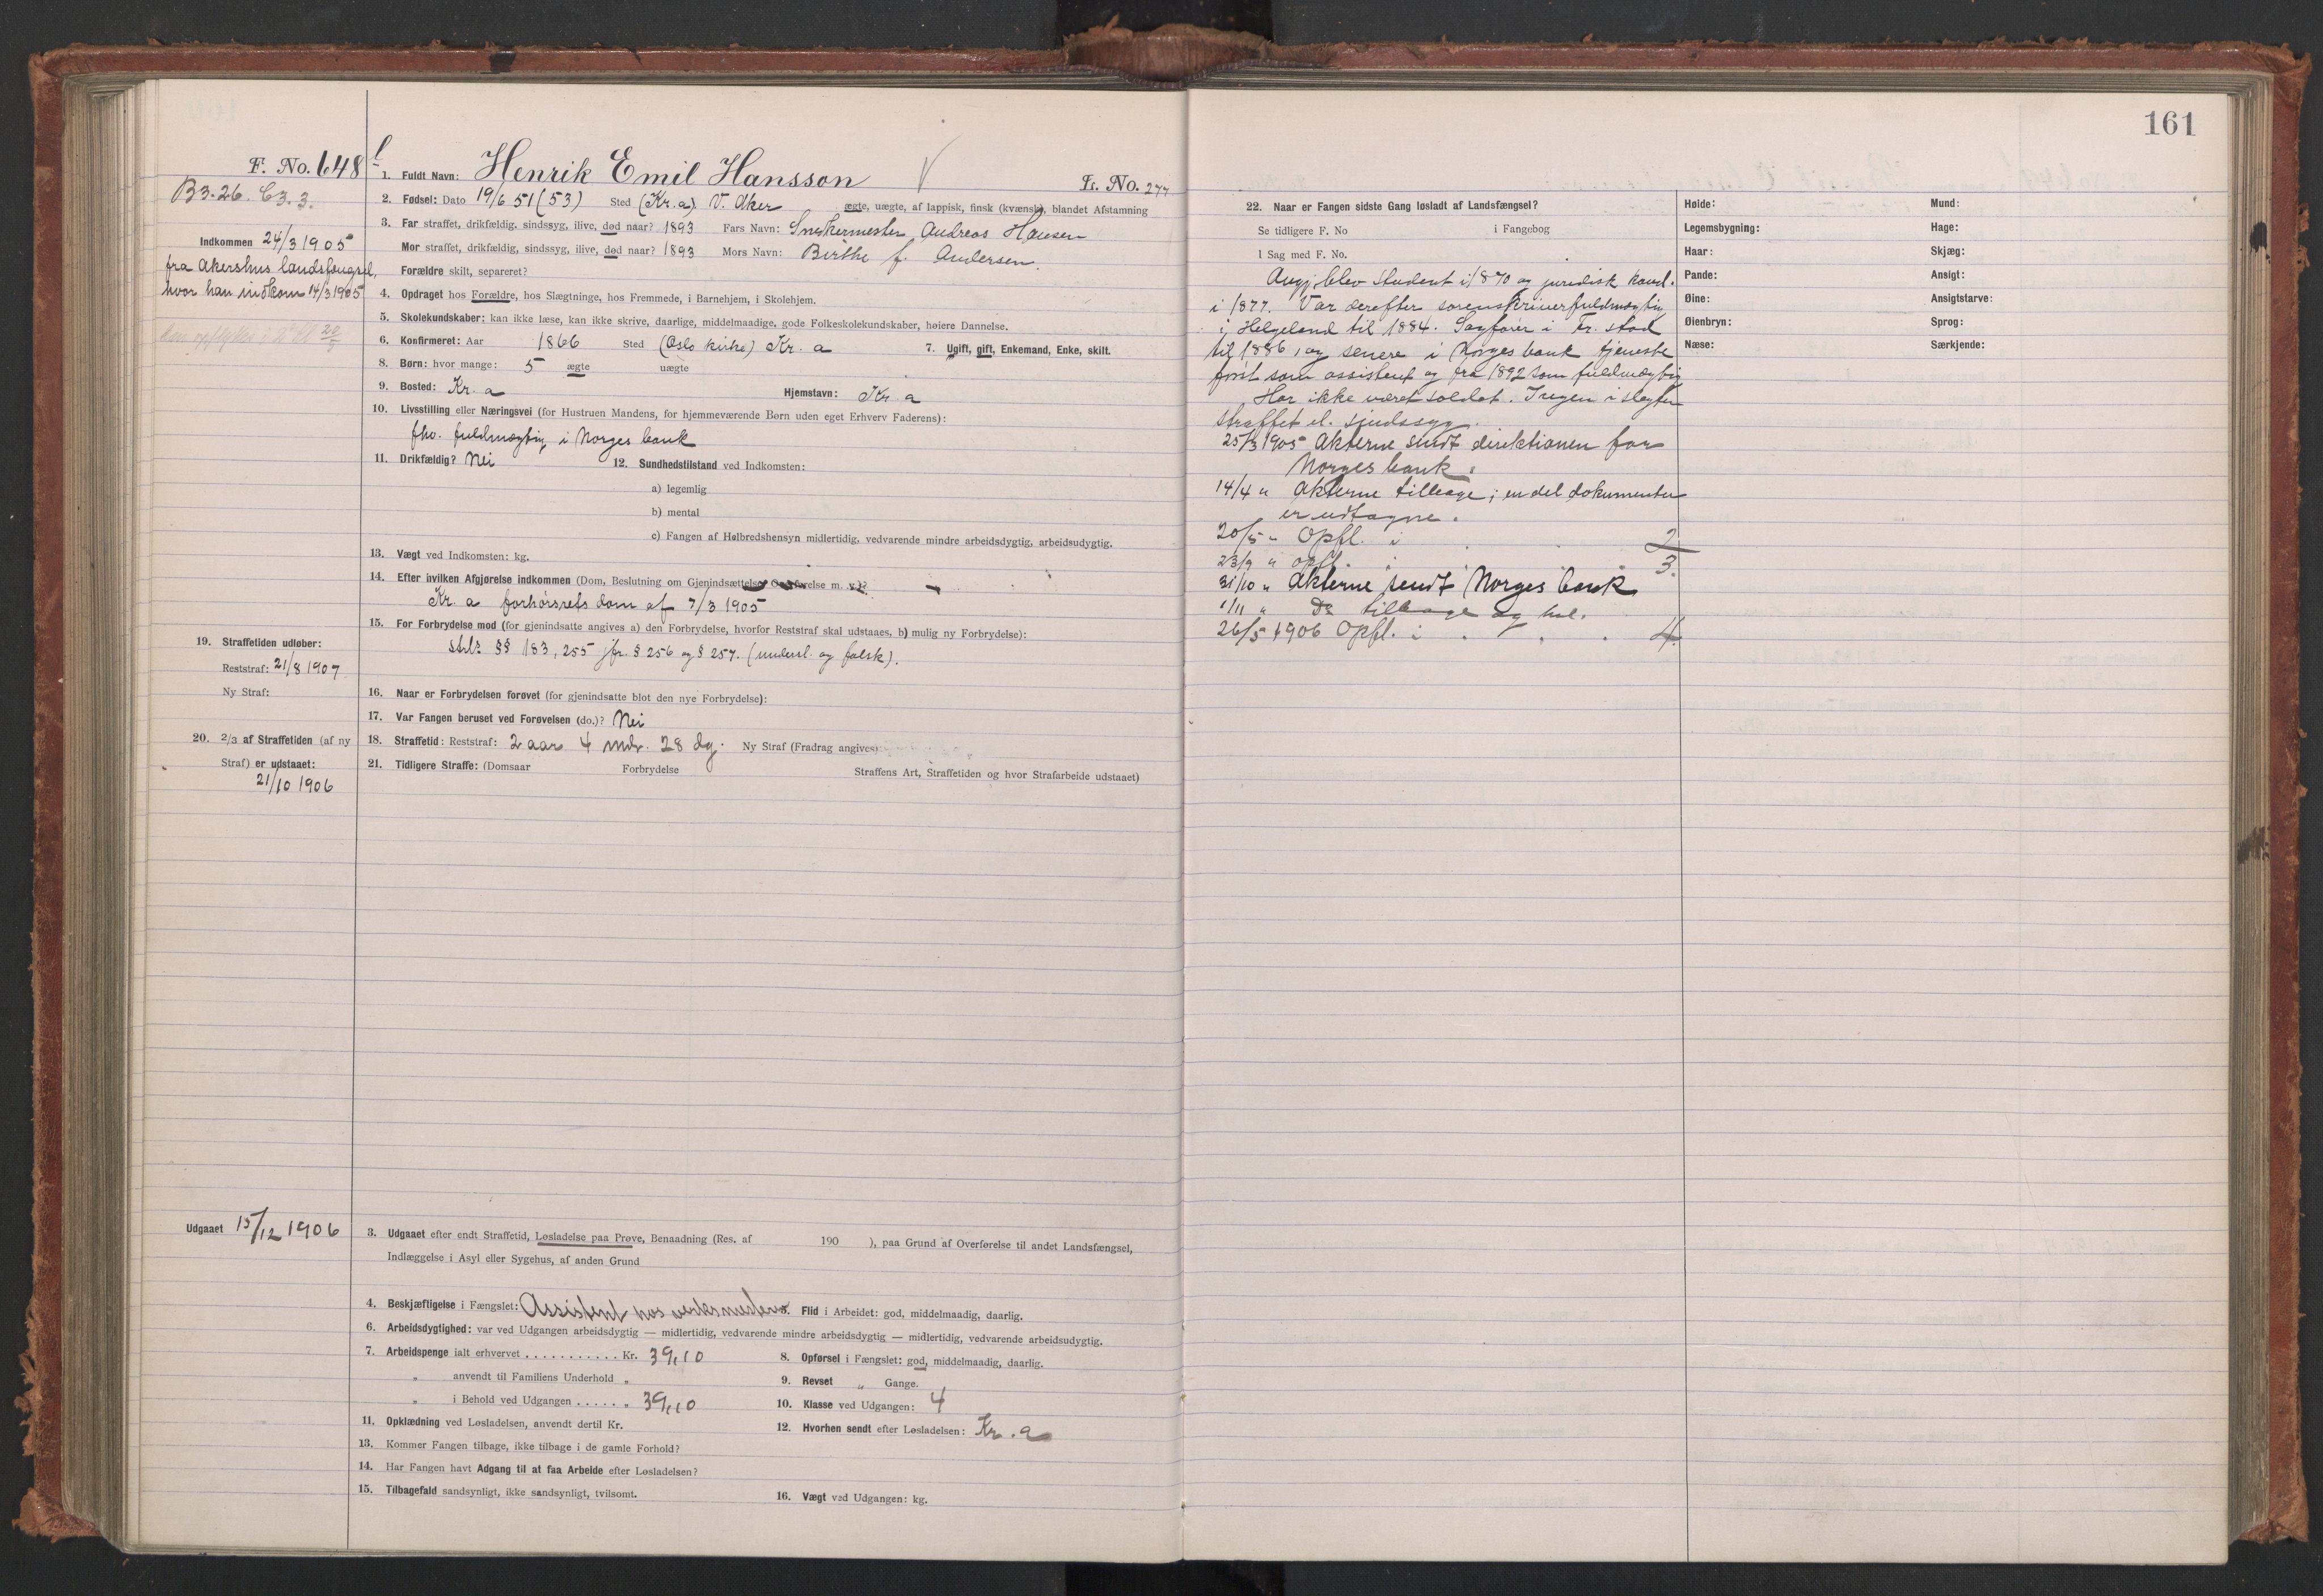 161
F. No. 648
B3.26. C3.3.
Indkommen 24/3 1905
fra Akershus landsfængsel,
hvor han indkom 14/3 1905
1. Fuldt Navn: Henrik Emil Hansson V Fr. No. 277
2. Fødsel: Dato 19/6 51 (53) Sted (Kr.a) V. Aker ægte, uægte, af lappisk, finsk (kvænsk), blandet Afstamning
3. Far straffet, drikfældig, sindssyg, ilive, død naar? 1893 Fars Navn: Snekermester Andreas Hansen
Mor straffet, drikfældig, sindssyg, ilive, død naar? 1893 Mors Navn: Birthe f. Andersen.
Forældre skilt, separeret?
4. Opdraget hos Forældre, hos Slægtninge, hos Fremmede, i Barnehjem, i Skolehjem.
5. Skolekundskaber: kan ikke læse, kan ikke skrive, daarlige, middelmaadige, gode Folkeskolekundskaber, høiere Dannelse.
6. Konfirmeret: Aar 1866 Sted (Oslo kirke) Kr. a 7. Ugift, gift, Enkemand, Enke, skilt.
8. Børn: hvor mange: 5 ægte uægte
9. Bosted: Kr. a Hjemstavn: Kr a
10. Livsstilling eller Næringsvei (for Hustruen Mandens, for hjemmeværende Børn uden eget Erhverv Faderens):
fhv. fuldmægtig i Norges bank
11. Drikfældig? Nei 12. Sundhedstilstand ved Indkomsten:
a) legemlig
b) mental
c) Fangen af Helbredshensyn midlertidig, vedvarende mindre arbeidsdygtig, arbeidsudygtig.
13. Vægt ved Indkomsten: kg.
14. Efter hvilken Afgjørelse indkommen (Dom, Beslutning om Gjenindsættelse, Overførelse m. v.)?
Kr. a forhørsrets dom af 7/3 1905
15. For Forbrydelse mod (for gjenindsatte angives a) den Forbrydelse, hvorfor Reststraf skal udstaaes, b) mulig ny Forbrydelse):
strl. §§ 183, 255 jfr. § 256 og § 257. (undersl. og falsk).
19. Straffetiden udløber:
Reststraf: 21/8 1907
Ny Straf:
16. Naar er Forbrydelsen forøvet (for gjenindsatte blot den nye Forbrydelse):
17. Var Fangen beruset ved Forøvelsen (do.)? Nei
20. 2/3 af Straffetiden (af ny
Straf) er udstaaet:
21/10 1906
18. Straffetid: Reststraf: 2 aar 4 mdr. 28 dg. Ny Straf (Fradrag angives)
21. Tidligere Straffe: (Domsaar Forbrydelse Straffens Art, Straffetiden og hvor Strafarbeide udstaaet)
Udgaaet 15/12 1906
3. Udgaaet efter endt Straffetid, Løsladelse paa Prøve, Benaadning (Res. af 190 ), paa Grund af Overførelse til andet Landsfængsel,
Indlæggelse i Asyl eller Sygehus, af anden Grund
4. Beskjæftigelse i Fængslet: Assistent hos verksmesteren 5. Flid i Arbeidet: god, middelmaadig, daarlig.
6. Arbeidsdygtighed: var ved Udgangen arbeidsdygtig — midlertidig, vedvarende mindre arbeidsdygtig — midlertidig, vedvarende arbeidsudygtig.
7. Arbeidspenge ialt erhvervet . . . . . . . . . . . Kr. 39,10 8. Opførsel i Fængslet: god, middelmaadig, daarlig.
" anvendt til Familiens Underhold " 9. Revset " Gange.
" i Behold ved Udgangen . . . . . " 39,10 10. Klasse ved Udgangen: 4
11. Opklædning ved Løsladelsen, anvendt dertil Kr. 12. Hvorhen sendt efter Løsladelsen: Kr. a
13. Kommer Fangen tilbage, ikke tilbage i de gamle Forhold?
14. Har Fangen havt Adgang til at faa Arbeide efter Løsladelsen?
15. Tilbagefald sandsynligt, ikke sandsynligt, tvilsomt. 16. Vægt ved Udgangen: kg.
22. Naar er Fangen sidste Gang løsladt af Landsfængsel?
Se tidligere F. No i Fangebog
I Sag med F. No.
Angj. blev student i 1870 og juridisk kand.
i 1877. Var derefter sorenskriverfuldmægtig
i Helgeland til 1884. Sagfører i Fr. stad
til 1886, og senere i Norges bank tjeneste
først som assistent og fra 1892 som fuldmægtig
Har ikke været soldat. Ingen i slægten
straffet el. sindssyg.
25/3 1905 Akterne sendt direktionen for
Norges bank.
14/4 " Akterne tilbage; en del dokumenter
er udtagne.
20/5 " Opfl. i . . 2
23/9 " opfl. i . . 3.
31/10 " Akterne sendt Norges bank
1/11 " Do tilbage og hel.
26/5 1906 Opfl. i . . . 4.
Høide: Mund:
Legemsbygning: Hage:
Haar: Skjæg:
Pande: Ansigt:
Øine: Ansigtstarve:
Øienbryn: Sprog:
Næse: Særkjende: